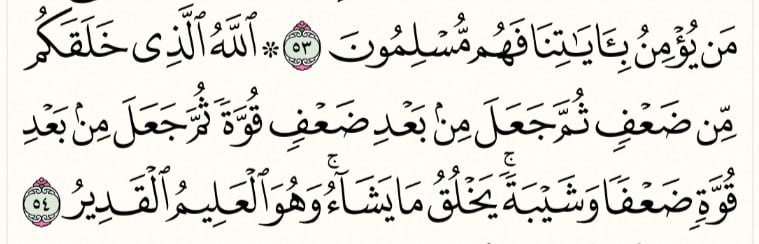 مَن يُؤْمِنُ بِـَٔايَـٰتِنَا فَهُم مُّسْلِمُونَ ٥٣ ۞ ٱللَّهُ ٱلَّذِى خَلَقَكُم
مِّن ضَعْفٍ ثُمَّ جَعَلَ مِنۢ بَعْدِ ضَعْفٍ قُوَّةً ثُمَّ جَعَلَ مِنۢ بَعْدِ
قُوَّةٍ ضَعْفًا وَشَيْبَةً ۚ يَخْلُقُ مَا يَشَآءُ ۚ وَهُوَ ٱلْعَلِيمُ ٱلْقَدِيرُ ٥٤